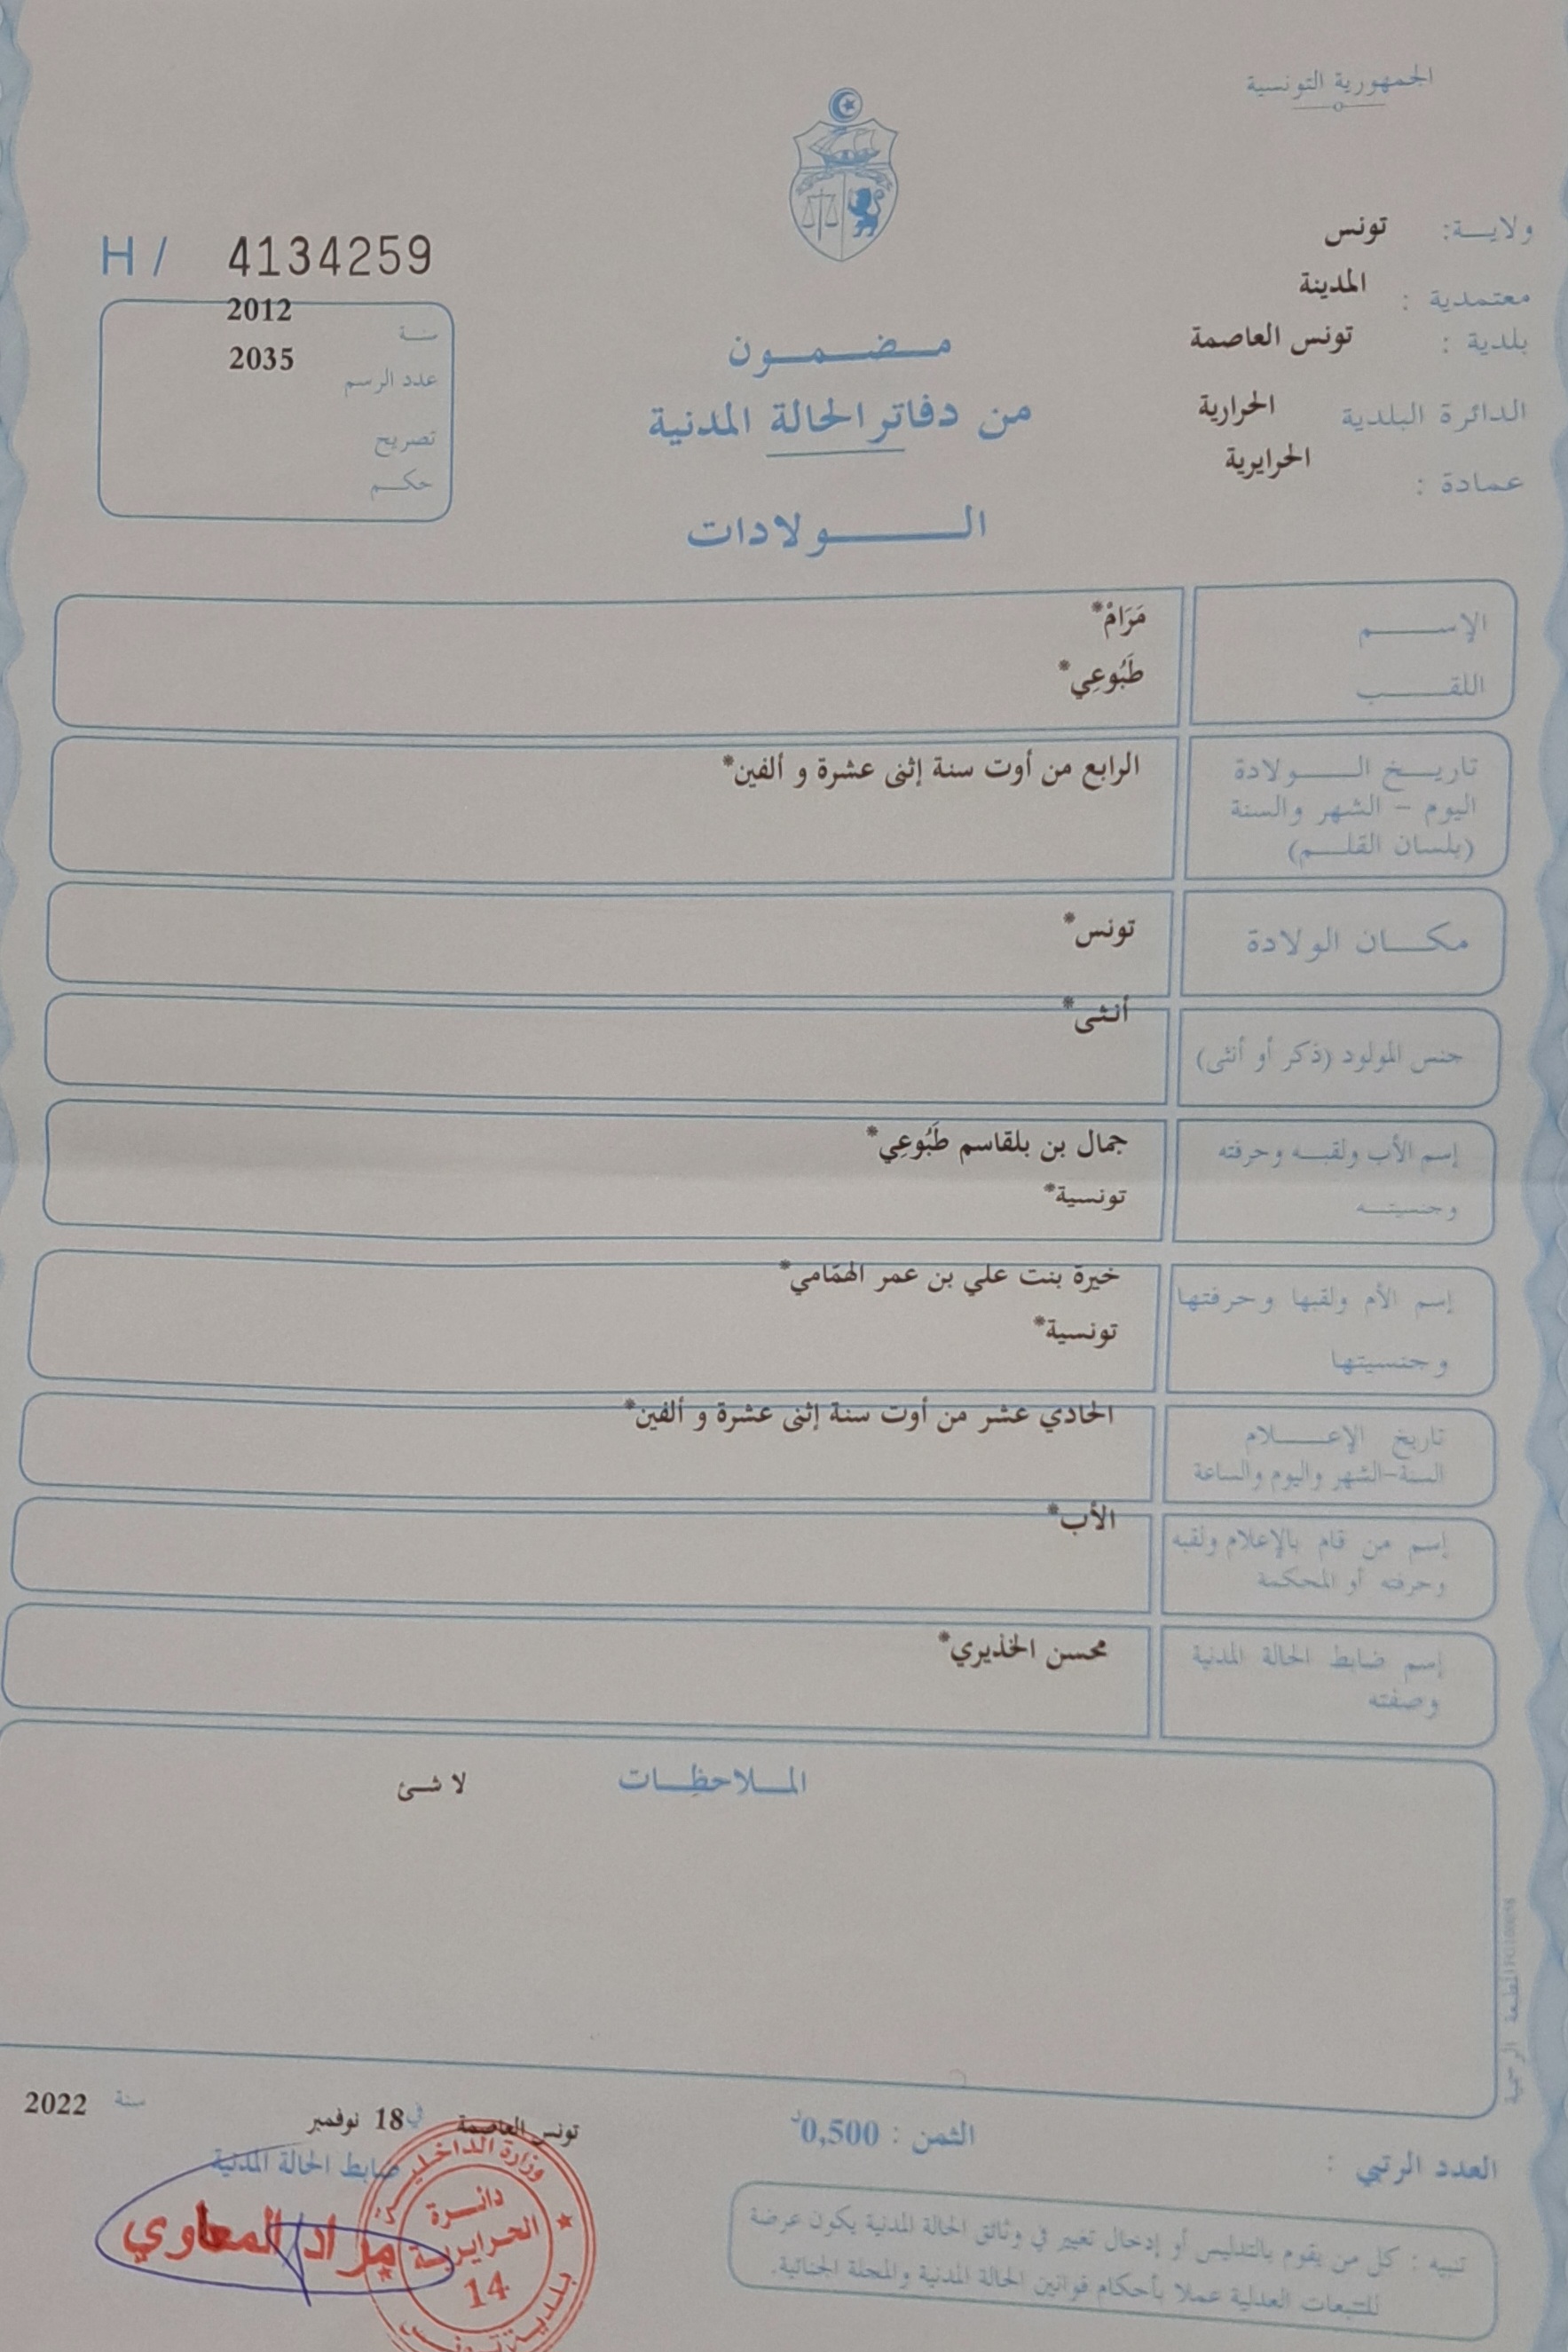 الجمهورية التونسية
ولايــة: تونس
معتمدية : المدينة
بلدية : تونس العاصمة
الدائرة البلدية الحرارية
عمادة : الحرايرية
H / 4134259
سنة 2012
عدد الرسم 2035
تصريح
حكم
مضمون
من دفاتر الحالة المدنية
الولادات
الإسم مَرَامْ*
اللقب طَبُوعِي*
تاريخ الولادة الرابع من أوت سنة إثنى عشرة و ألفين*
اليوم - الشهر والسنة
(بلسان القلم)
مكان الولادة تونس*
جنس المولود (ذكر أو أنثى) أنثى*
إسم الأب ولقبه وحرفته جمال بن بلقاسم طَبُوعِي*
وجنسيته تونسية*
إسم الأم ولقبها وحرفتها خيرة بنت علي بن عمر الهمّامي*
وجنسيتها تونسية*
تاريخ الإعلام الحادي عشر من أوت سنة إثنى عشرة و ألفين*
السنة-الشهر واليوم والساعة
إسم من قام بالإعلام ولقبه الأب*
وحرفته أو المحكمة
إسم ضابط الحالة المدنية محسن الخذيري*
وصفته
الملاحظات لا شئ
المطبعة الرسمية
العدد الرتبي :
الثمن : 0,500د
تونس العاصمة في 18 نوفمبر سنة 2022
ضابط الحالة المدنية
مراد المعاوي
وزارة الداخلية
دائرة
الحرايرية
14
بلدية تونس
تنبيه : كل من يقوم بالتدليس أو إدخال تغيير في وثائق الحالة المدنية يكون عرضة
للتتبعات العدلية عملا بأحكام قوانين الحالة المدنية والمجلة الجنائية.